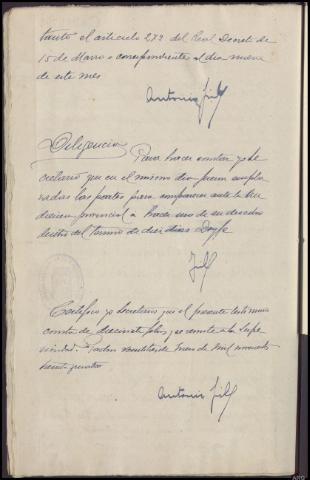 tanto el articulo 279 del Real Decreto de
15 de Marzo o correspondiente al dia nueve
de este mes
Antonio Gil
Diligencia Para hacer constar yo he
declaro que en el mismo dia fueron empla
zadas las partes para comparecer ante la Au
diencia provincial a hacer uso de su derecho
dentro del termino de diez dias Doy fe
Gil
Certifico yo Secretario que el presente testimonio
consta de diecisiete folios y se remite a la Supe
rioridad.
de mil novecientos
treinta y cuatro
Antonio Gil